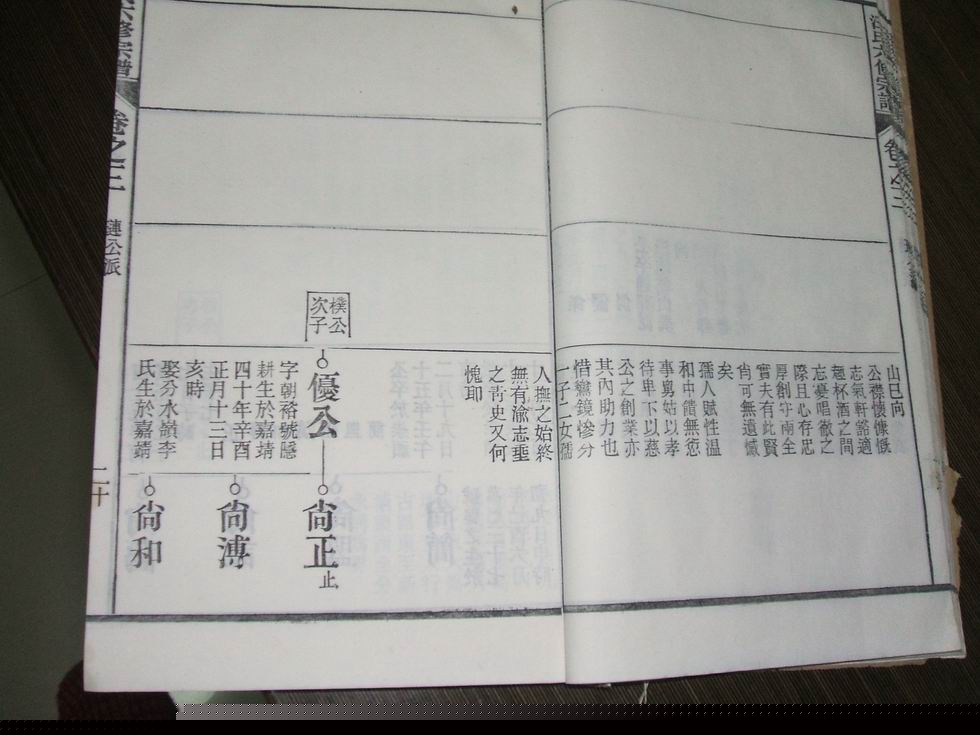 氏六修宗譜
卷之三
山巳向
公襟懷慷慨
志氣軒豁適
趣杯酒之間
忘憂唱徹之
際且心存忠
厚創守兩全
實夫有此賢
尚可無遺憾
矣
孺人賦性溫
和中饋無愆
事舅姑以孝
待卑下以慈
公之創業亦
其內助力也
惜鸞鏡慘分
一子二女孺
人撫之始終
無有渝志垂
之青史又何
愧耶
樸公
次子
優公
字朝裕號隱
耕生於嘉靖
四十年辛酉
正月十三日
亥時
娶分水嶺李
氏生於嘉靖
尙正
止
尙溥
尙和
六修宗譜
卷之三
璉公派
二十